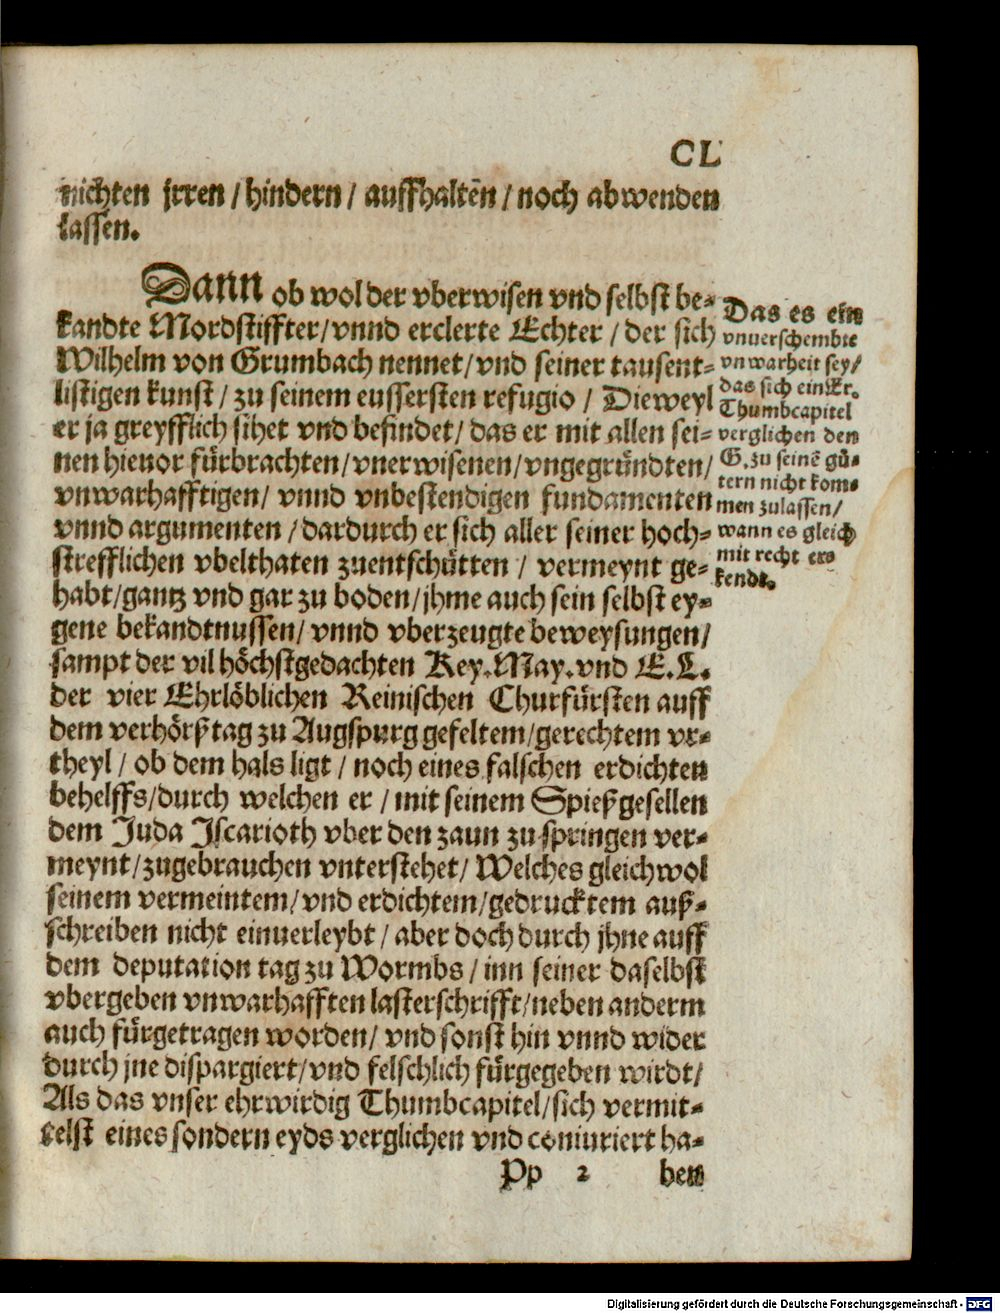 CL
nichten jrren / hindern / auffhaltẽn / noch abwenden
lassen.
Dann ob wol der vberwisen vnd selbst be-
kandte Mordstiffter/vnnd erclerte Echter / der sich
Wilhelm von Grumbach nennet/vnd seiner tausent-
listigen kunst / zu seinem eussersten refugio / Dieweyl
er ja greyfflich sihet vnd befindet/ das er mit allen sei-
nen hieuor fürbrachten/vnerwisenen/vngegründten/
vnwarhafftigen/ vnnd vnbestendigen fundamenten
vnnd argumenten / dardurch er sich aller seiner hoch-
strefflichen vbelthaten zuentschütten / vermeynt ge-
habt/gantz vnd gar zu boden/jhme auch sein selbst ey-
gene bekandtnussen/ vnnd vberzeugte beweysungen/
sampt der vil höchstgedachten Key.May.vnd E.L.
der vier Ehrlöblichen Reinischen Churfürsten auff
dem verhörß tag zu Augspurg gefeltem/gerechtem vr-
theyl / ob dem hals ligt / noch eines falschen erdichten
behelffs/durch welchen er / mit seinem Spießgesellen
dem Juda Jscarioth vber den zaun zu springen ver-
meynt/zugebrauchen vnterstehet/ Welches gleichwol
seinem vermeintem/vnd erdichtem/gedrucktem auß-
schreiben nicht einuerleybt / aber doch durch jhne auff
dem deputation tag zu Wormbs / inn seiner daselbst
vbergeben vnwarhafften lasterschrifft/neben anderm
auch fürgetragen worden/ vnd sonst hin vnnd wider
durch jne dispargiert/vnd felschlich fürgegeben wirdt/
Als das vnser ehrwirdig Thumbcapitel/sich vermit-
telst eines sondern eyds verglichen vnd coniuriert ha-
Pp 2 ben
Das es ein
vnuerschembte
vnwarheit sey/
das sich ein Er.
Thumbcapitel
verglichen den
G. zu seinẽ gü-
tern nicht kom-
men zulassen/
wann es gleich
mit recht er-
kendt.
Digitalisierung gefördert durch die Deutsche Forschungsgemeinschaft - DFG